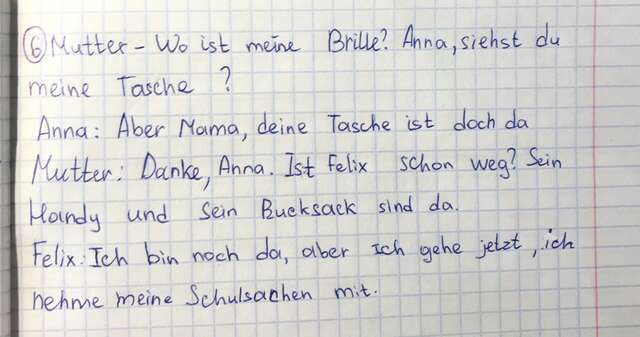 ⑥ Mutter - Wo ist meine Brille? Anna, siehst du
meine Tasche ?
Anna: Aber Mama, deine Tasche ist doch da
Mutter: Danke, Anna. Ist Felix schon weg? Sein
Handy und sein Rucksack sind da.
Felix: Ich bin noch da, aber ich gehe jetzt, ich
nehme meine Schulsachen mit.